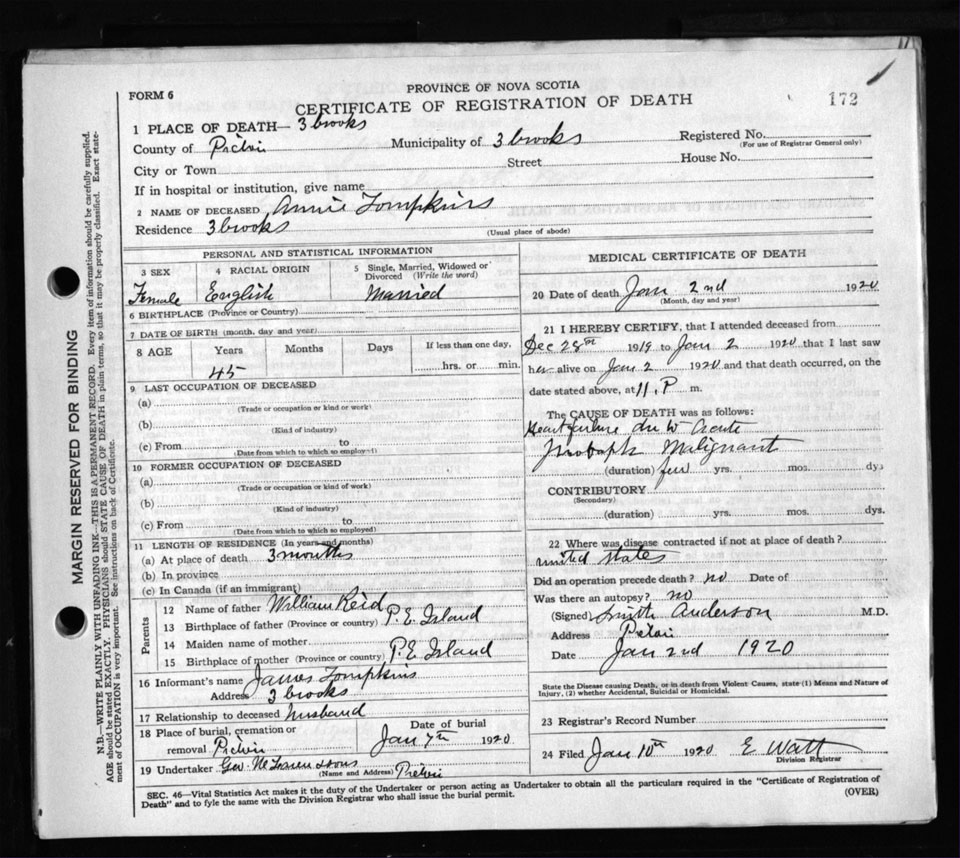 PROVINCE OF NOVA SCOTIA
FORM 6
CERTIFICATE OF REGISTRATION OF DEATH
172
1 PLACE OF DEATH— 3 brooks
County of Pictou Municipality of 3 brooks Registered No.
(For use of Registrar General only)
City or Town Street House No.
If in hospital or institution, give name
2 NAME OF DECEASED Annie Tompkins
Residence 3 brooks
(Usual place of abode)
PERSONAL AND STATISTICAL INFORMATION
3 SEX 4 RACIAL ORIGIN 5 Single, Married, Widowed or Divorced (Write the word)
Female English Married
6 BIRTHPLACE (Province or Country)
7 DATE OF BIRTH (month, day and year)
8 AGE Years Months Days If less than one day,
45 hrs. or min.
9 LAST OCCUPATION OF DECEASED
(a)
(Trade or occupation or kind or work)
(b)
(Kind of industry)
(c) From to
(Date from which to which so employed)
10 FORMER OCCUPATION OF DECEASED
(a)
(Trade or occupation or kind of work)
(b)
(Kind of industry)
(c) From to
(Date from which to which so employed)
11 LENGTH OF RESIDENCE (In years and months)
(a) At place of death 3 months
(b) In province
(c) In Canada (if an immigrant)
Parents
12 Name of father William Reid
13 Birthplace of father (Province or country) P.E. Island
14 Maiden name of mother
15 Birthplace of mother (Province or country) P.E. Island
16 Informant's name James Tompkins
Address 3 brooks
17 Relationship to deceased husband
18 Place of burial, cremation or Date of burial
removal Pictou Jan 7th 1920
19 Undertaker Geo. & Sons Pictou
(Name and Address)
MEDICAL CERTIFICATE OF DEATH
20 Date of death Jan 2nd 1920
(Month, day and year)
21 I HEREBY CERTIFY, that I attended deceased from
Dec 28th 1919 to Jan 2 1920 that I last saw
her alive on Jan 2 1920 and that death occurred, on the
date stated above, at 11. P m.
The CAUSE OF DEATH was as follows:
Heart failure due to
Malignant
(duration) few yrs. mos. dys
CONTRIBUTORY
(Secondary)
(duration) yrs. mos. dys.
22 Where was disease contracted if not at place of death?
United States
Did an operation precede death? no Date of
Was there an autopsy? no
(Signed) Smith Anderson M.D.
Address Pictou
Date Jan 2nd 1920
State the Disease causing Death, or in death from Violent Causes, state (1) Means and Nature of
Injury, (2) whether Accidental, Suicidal or Homicidal.
23 Registrar's Record Number
24 Filed Jan 10th 1920 E Watt
Division Registrar
SEC. 46—Vital Statistics Act makes it the duty of the Undertaker or person acting as Undertaker to obtain all the particulars required in the "Certificate of Registration of
Death" and to fyle the same with the Division Registrar who shall issue the burial permit.
(OVER)
MARGIN RESERVED FOR BINDING
N.B.—WRITE PLAINLY WITH UNFADING INK—THIS IS A PERMANENT RECORD. Every item of information should be carefully supplied.
AGE should be stated EXACTLY. PHYSICIANS should STATE CAUSE OF DEATH in plain terms, so that it may be properly classified. Exact state-
ment of OCCUPATION is very important. See instructions on back of Certificate.